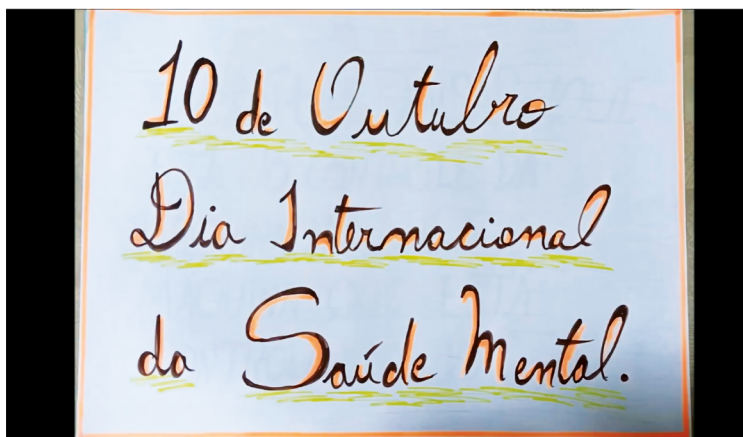 10 de Outubro
Dia Internacional
da Saúde Mental.